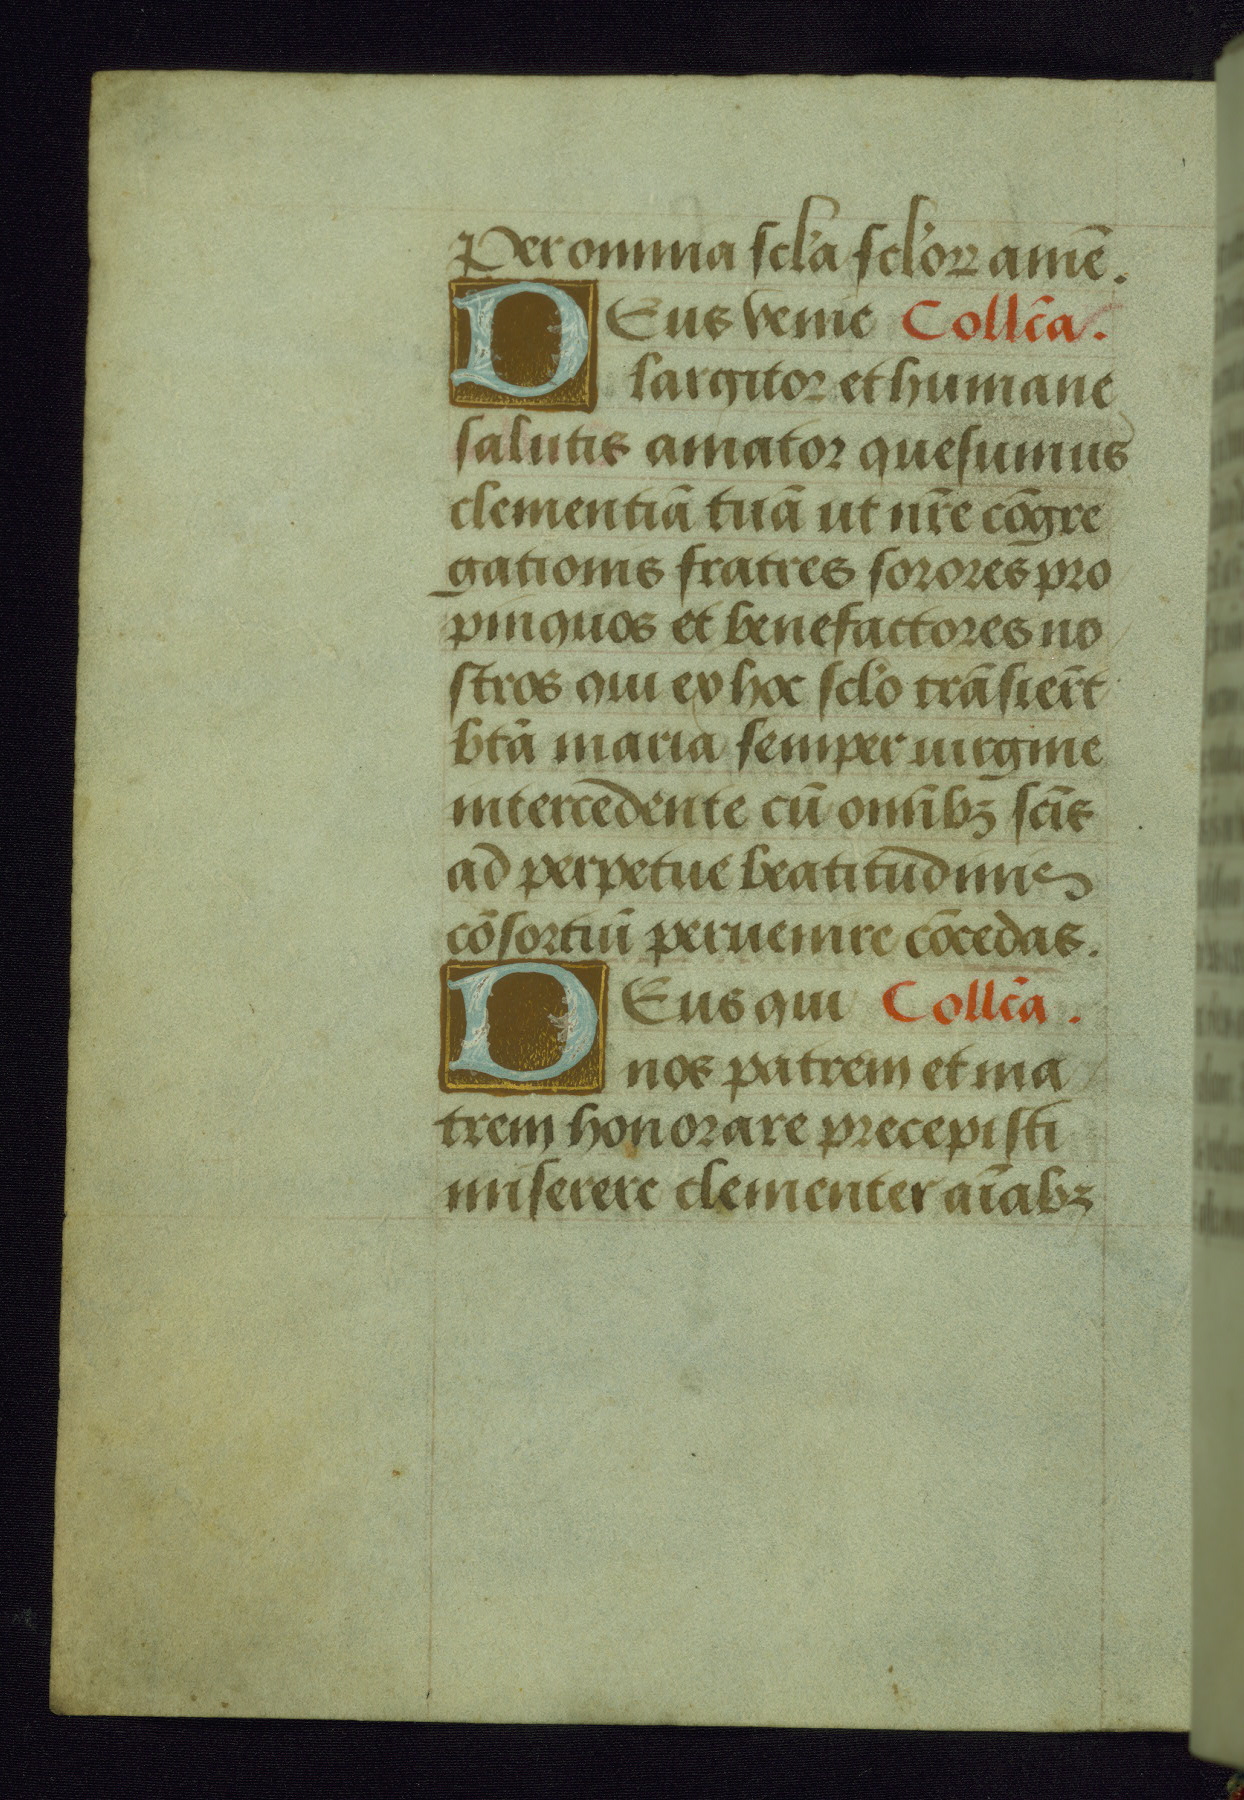 Per omnia scl'a scl'oꝝ amē.
DEus venie Collc̄a.
largitor et humane
salutis amator quesumus
clementiā tuā ut nr̄e cōgre
gationis fratres sorores pro
pinquos et benefactores no
stros qui ex hoc scl'o trāsier̄t
btā maria semper uirgine
intercedente cū omībꝫ scīs
ad perpetue beatitudinis
cōsortiū peruenire cōcedas.
DEus qui Collc̄a.
nos patrem et ma
trem honorare precepisti
miserere clementer aīabꝫ